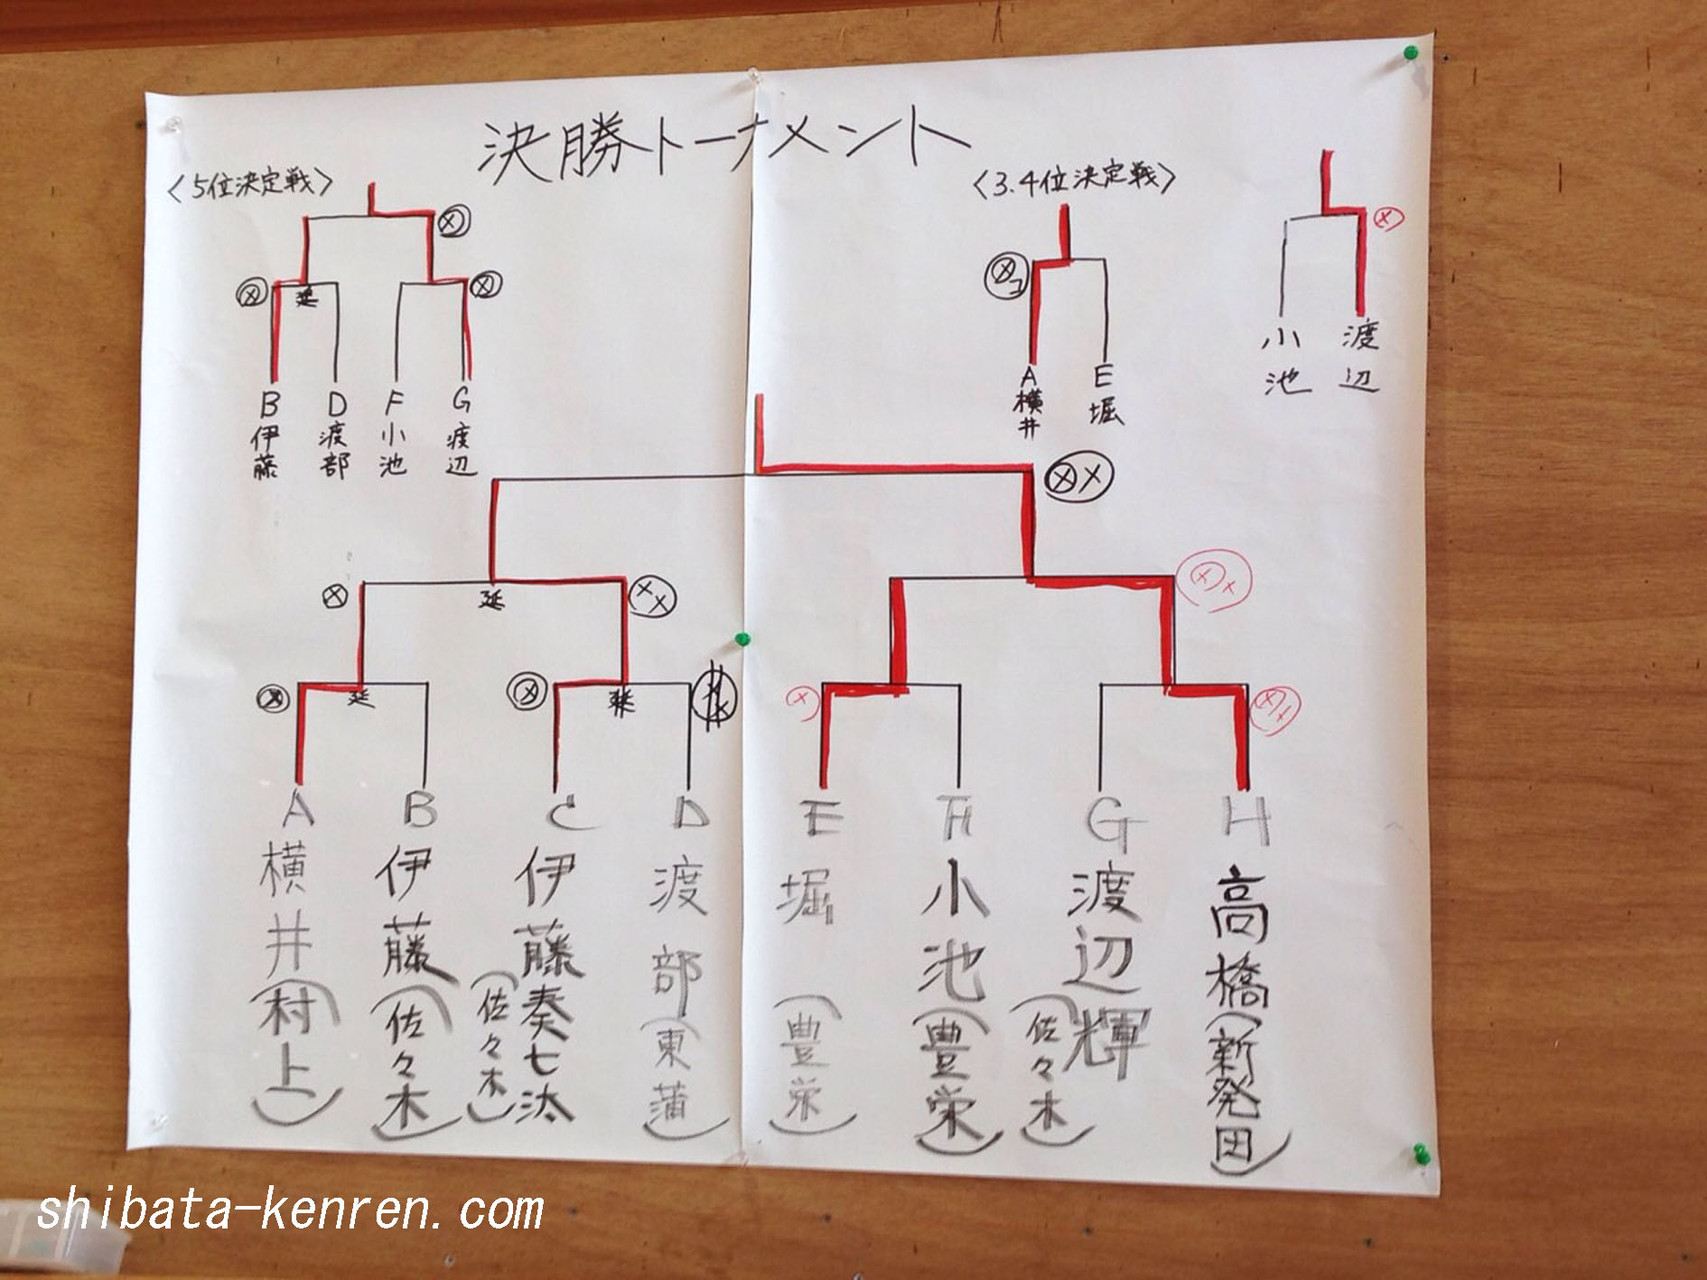 決勝トーナメント
〈5位決定戦〉
〈3.4位決定戦〉
延
B 伊藤
D 渡部
F 小池
G 渡辺
A 横井
E 堀
小池
渡辺
延
延
A 横井(村上)
B 伊藤(佐々木)
C 伊藤奏七汰(佐々木)
D 渡部(東蒲)
E 堀(豊栄)
F 小池(豊栄)
G 渡辺輝(佐々木)
H 高橋(新発田)
shibata-kenren.com